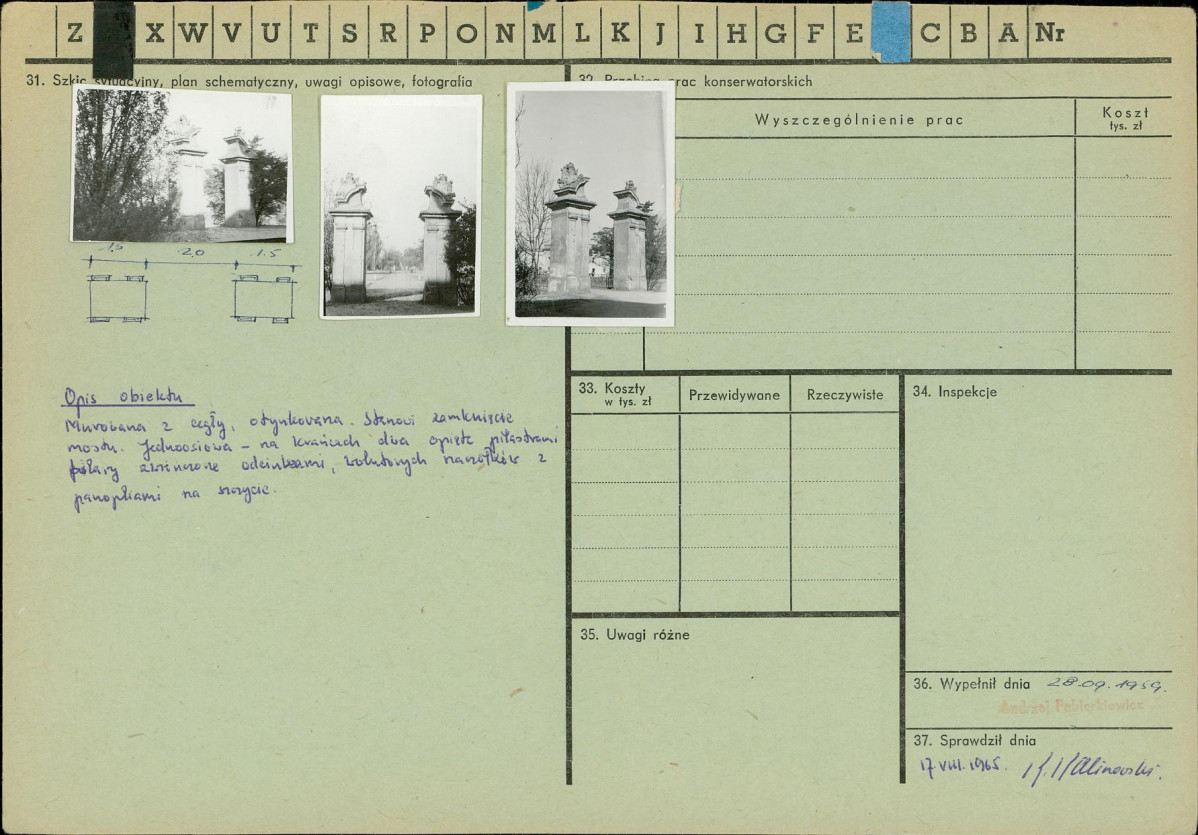 Z X W V U T S R P O N M L K J I H G F E C B A Nr
31. Szkic sytuacyjny, plan schematyczny, uwagi opisowe, fotografia
1,5 2,0 1.5
Opis obiektu
Murowana z cegły, otynkowana. Stanowi zamknięcie
mostu. Jednoosiowa – na krańcach dwa opięte pilastrami
filary zwieńczone odcinkami, wolutowych naczółków z
panopliami na szczycie.
32. Przebieg prac konserwatorskich
Wyszczególnienie prac
Koszt
tys. zł
33. Koszty
w tys. zł
Przewidywane
Rzeczywiste
34. Inspekcje
35. Uwagi różne
36. Wypełnił dnia 28.09.1959.
Andrzej Fabierkiewicz
37. Sprawdził dnia
17 VIII.1965. K. Kalinowski.